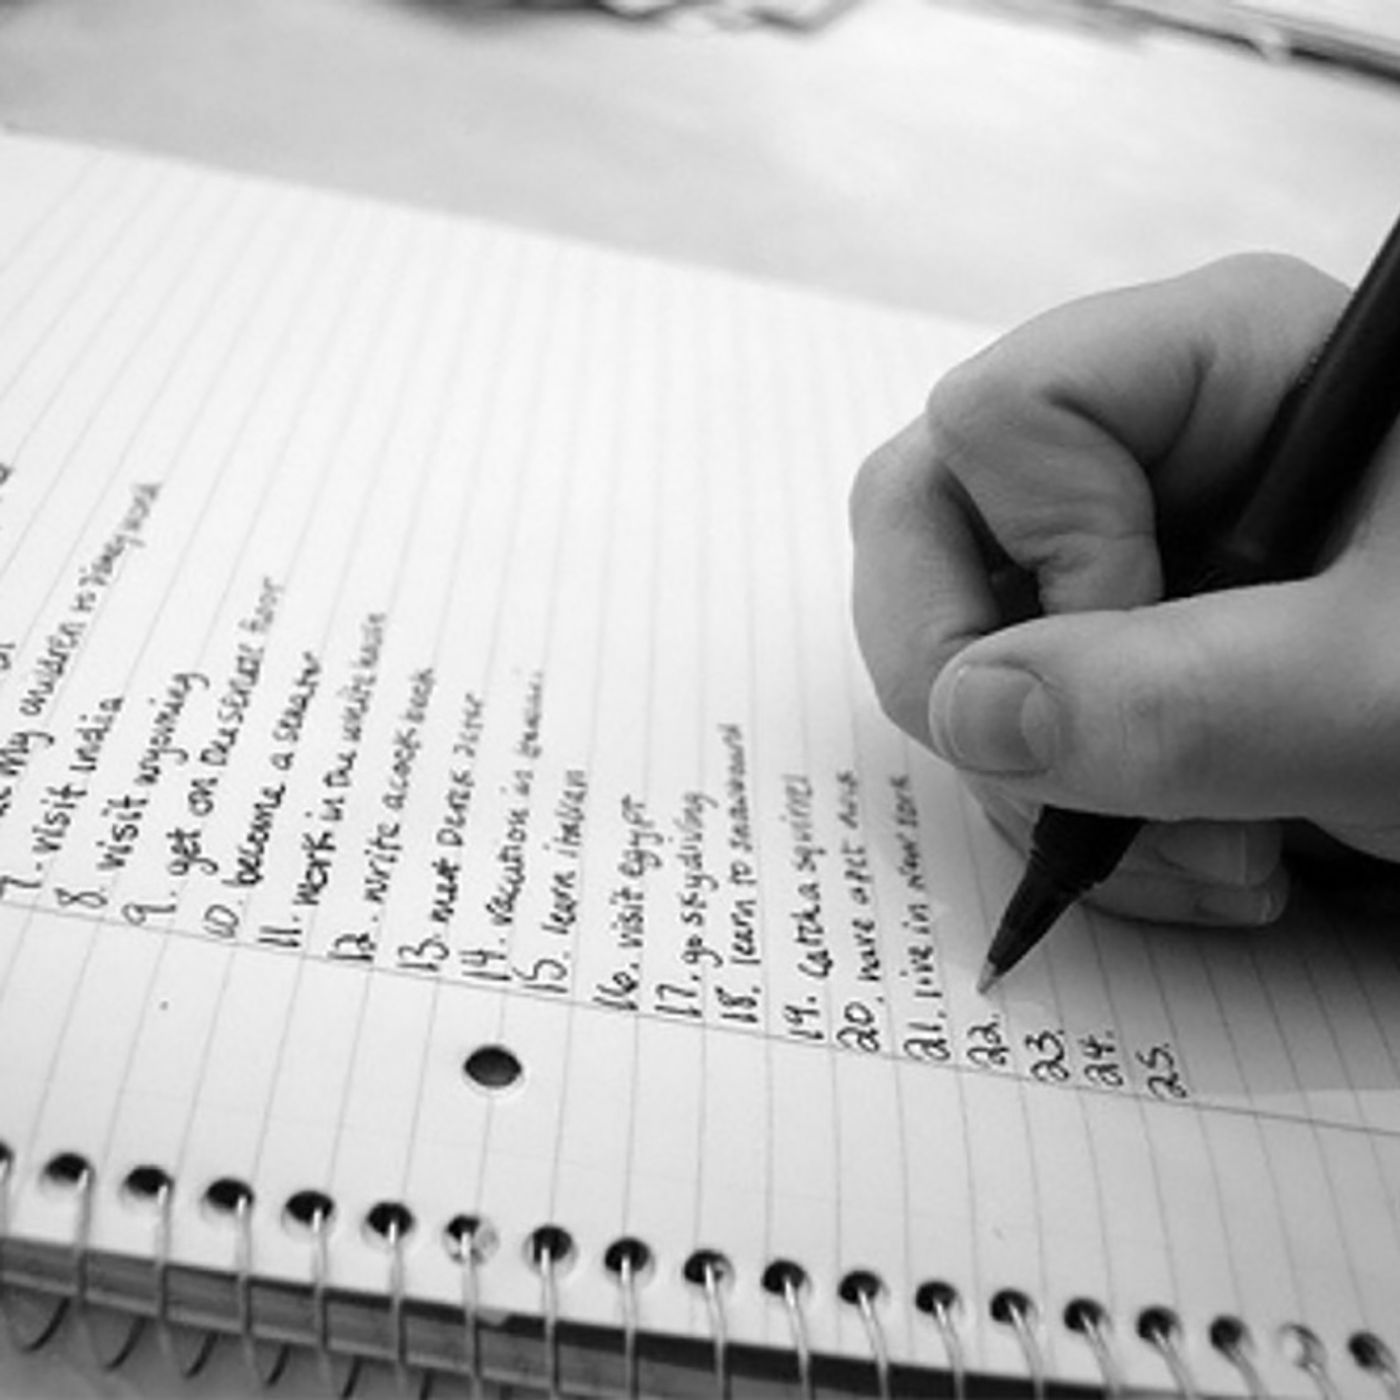 my children to disney world
7. visit india
8. visit wyoming
9. get on the senate floor
10. become a senator
11. work in the white house
12. write a cook book
13. meet Derek Jeter
14. vacation in
15. learn italian
16. visit egypt
17. go skydiving
18. learn to snowboard
19. catch a squirrel
20. have a pet duck
21. live in new york
22.
23.
24.
25.